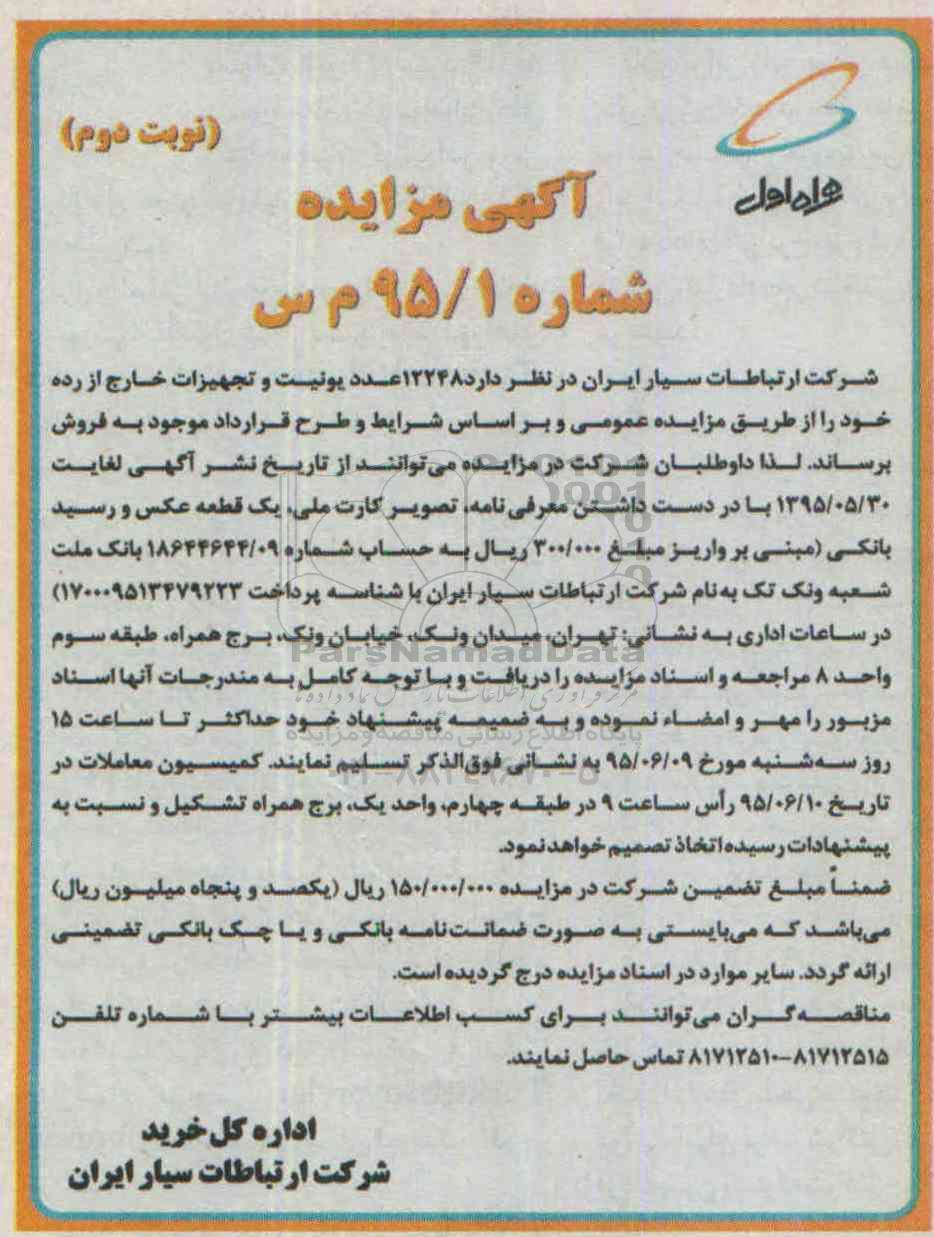 همراه اول
(نوبت دوم)
آگهی مزایده
شماره ۹۵/۱ م س
شرکت ارتباطات سیار ایران در نظر دارد۱۲۲۴۸عدد یونیت و تجهیزات خارج از رده
خود را از طریق مزایده عمومی و بر اساس شرایط و طرح قرارداد موجود به فروش
برساند. لذا داوطلبان شرکت در مزایده می‌توانند از تاریخ نشر آگهی لغایت
۱۳۹۵/۰۵/۳۰ با در دست داشتن معرفی نامه، تصویر کارت ملی، یک قطعه عکس و رسید
بانکی (مبنی بر واریز مبلغ ۳۰۰/۰۰۰ ریال به حساب شماره ۱۸۶۴۴۶۴۴/۰۹ بانک ملت
شعبه ونک تک به‌نام شرکت ارتباطات سیار ایران با شناسه پرداخت ۱۷۰۰۰۹۵۱۳۴۷۹۲۲۳)
در ساعات اداری به نشانی: تهران، میدان ونک، خیابان ونک، برج همراه، طبقه سوم
واحد ۸ مراجعه و اسناد مزایده را دریافت و با توجه کامل به مندرجات آنها اسناد
مزبور را مهر و امضاء نموده و به ضمیمه پیشنهاد خود حداکثر تا ساعت ۱۵
روز سه‌شنبه مورخ ۹۵/۰۶/۰۹ به نشانی فوق‌الذکر تسلیم نمایند. کمیسیون معاملات در
تاریخ ۹۵/۰۶/۱۰ رأس ساعت ۹ در طبقه چهارم، واحد یک، برج همراه تشکیل و نسبت به
پیشنهادات رسیده اتخاذ تصمیم خواهد نمود.
ضمناً مبلغ تضمین شرکت در مزایده ۱۵۰/۰۰۰/۰۰۰ ریال (یکصد و پنجاه میلیون ریال)
می‌باشد که می‌بایستی به صورت ضمانت‌نامه بانکی و یا چک بانکی تضمینی
ارائه گردد. سایر موارد در اسناد مزایده درج گردیده است.
مناقصه‌گران می‌توانند برای کسب اطلاعات بیشتر با شماره تلفن
۸۱۷۱۲۵۱۵-۸۱۷۱۲۵۱۰ تماس حاصل نمایند.
اداره کل خرید
شرکت ارتباطات سیار ایران
ParsNamadData
پایگاه اطلاع رسانی مناقصه و مزایده